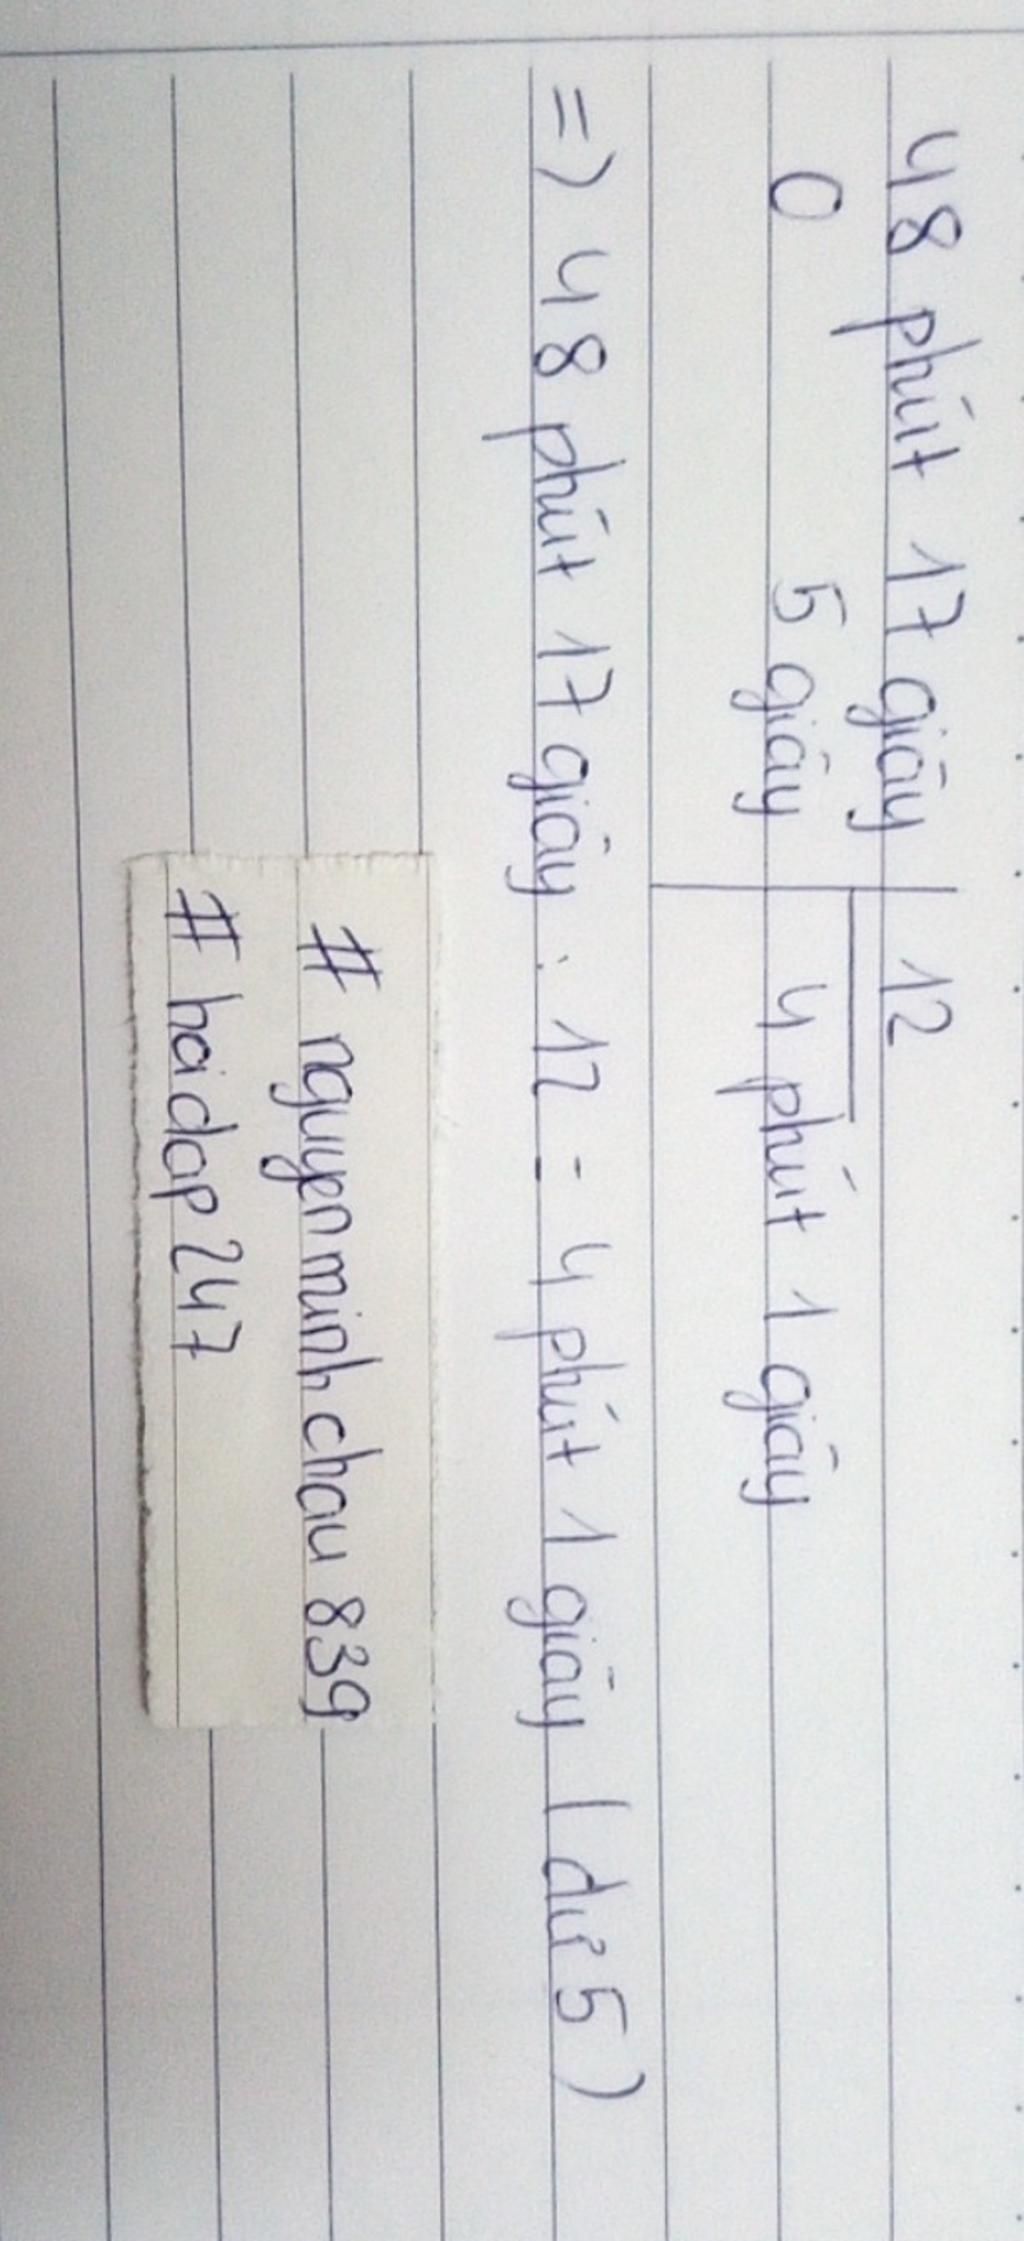 48 phút 17 giây 12
0 5 giây 4 phút 1 giây
=) 48 phút 17 giây : 12 = 4 phút 1 giây ( dư 5 )
# nguyenminhchau 839
# hoidap247